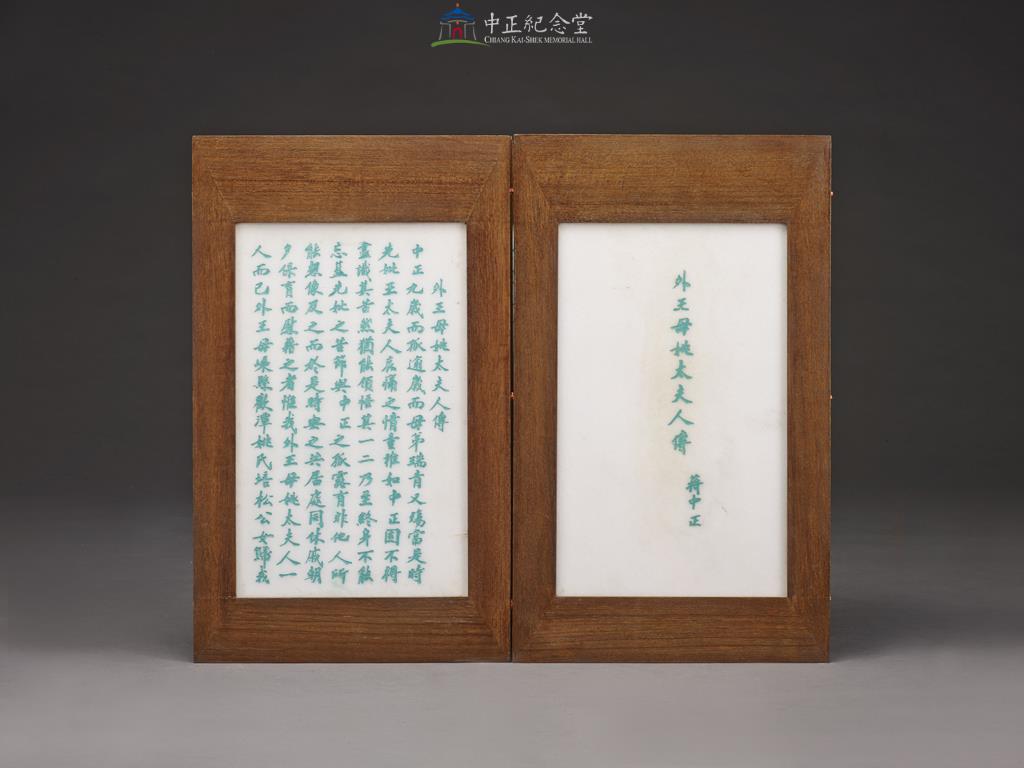 中正紀念堂
CHIANG KAI-SHEK MEMORIAL HALL
外王母姚太夫人傳
蔣中正
外王母姚太夫人傳
中正九歲而孤適歲而母弟瑞青又殤當是時
先妣王太夫人哀痛之情重摧如中正固不得
盡識其苦然猶能領悟其一二乃至終身不能
忘蓋先妣之苦節與中正之孤露育非他人所
能想像及之而於是時與之共居處同休戚朝
夕保育而慰藉之者惟我外王母姚太夫人一
人而已外王母嵊縣歡潭姚氏培松公女歸我